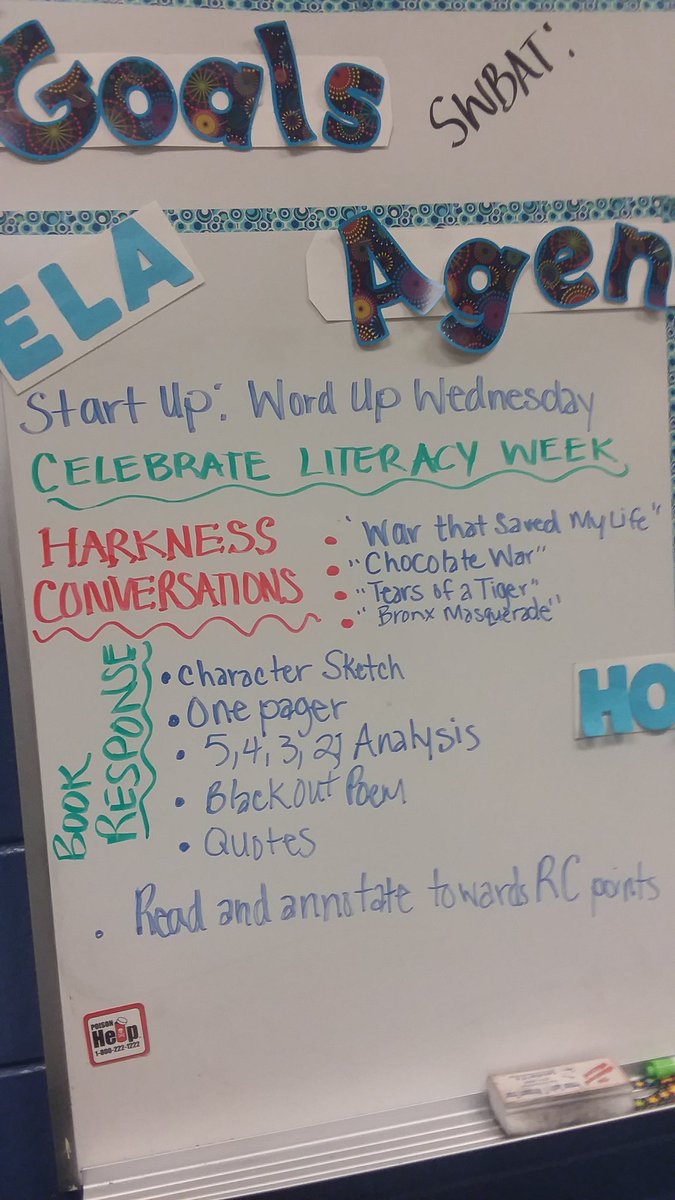 Goals
SWBAT:
ELA
Agen
Start Up: Word Up Wednesday
CELEBRATE LITERACY WEEK
HARKNESS
CONVERSATIONS
• "War that Saved My Life"
• "Chocolate War"
• "Tears of a Tiger"
• "Bronx Masquerade"
BOOK
RESPONSE
• Character Sketch
• One pager
• 5, 4, 3, 2, 1 Analysis
• Blackout Poem
• Quotes
HO
• Read and annotate towards RC points
POISON
Help
1-800-222-1222